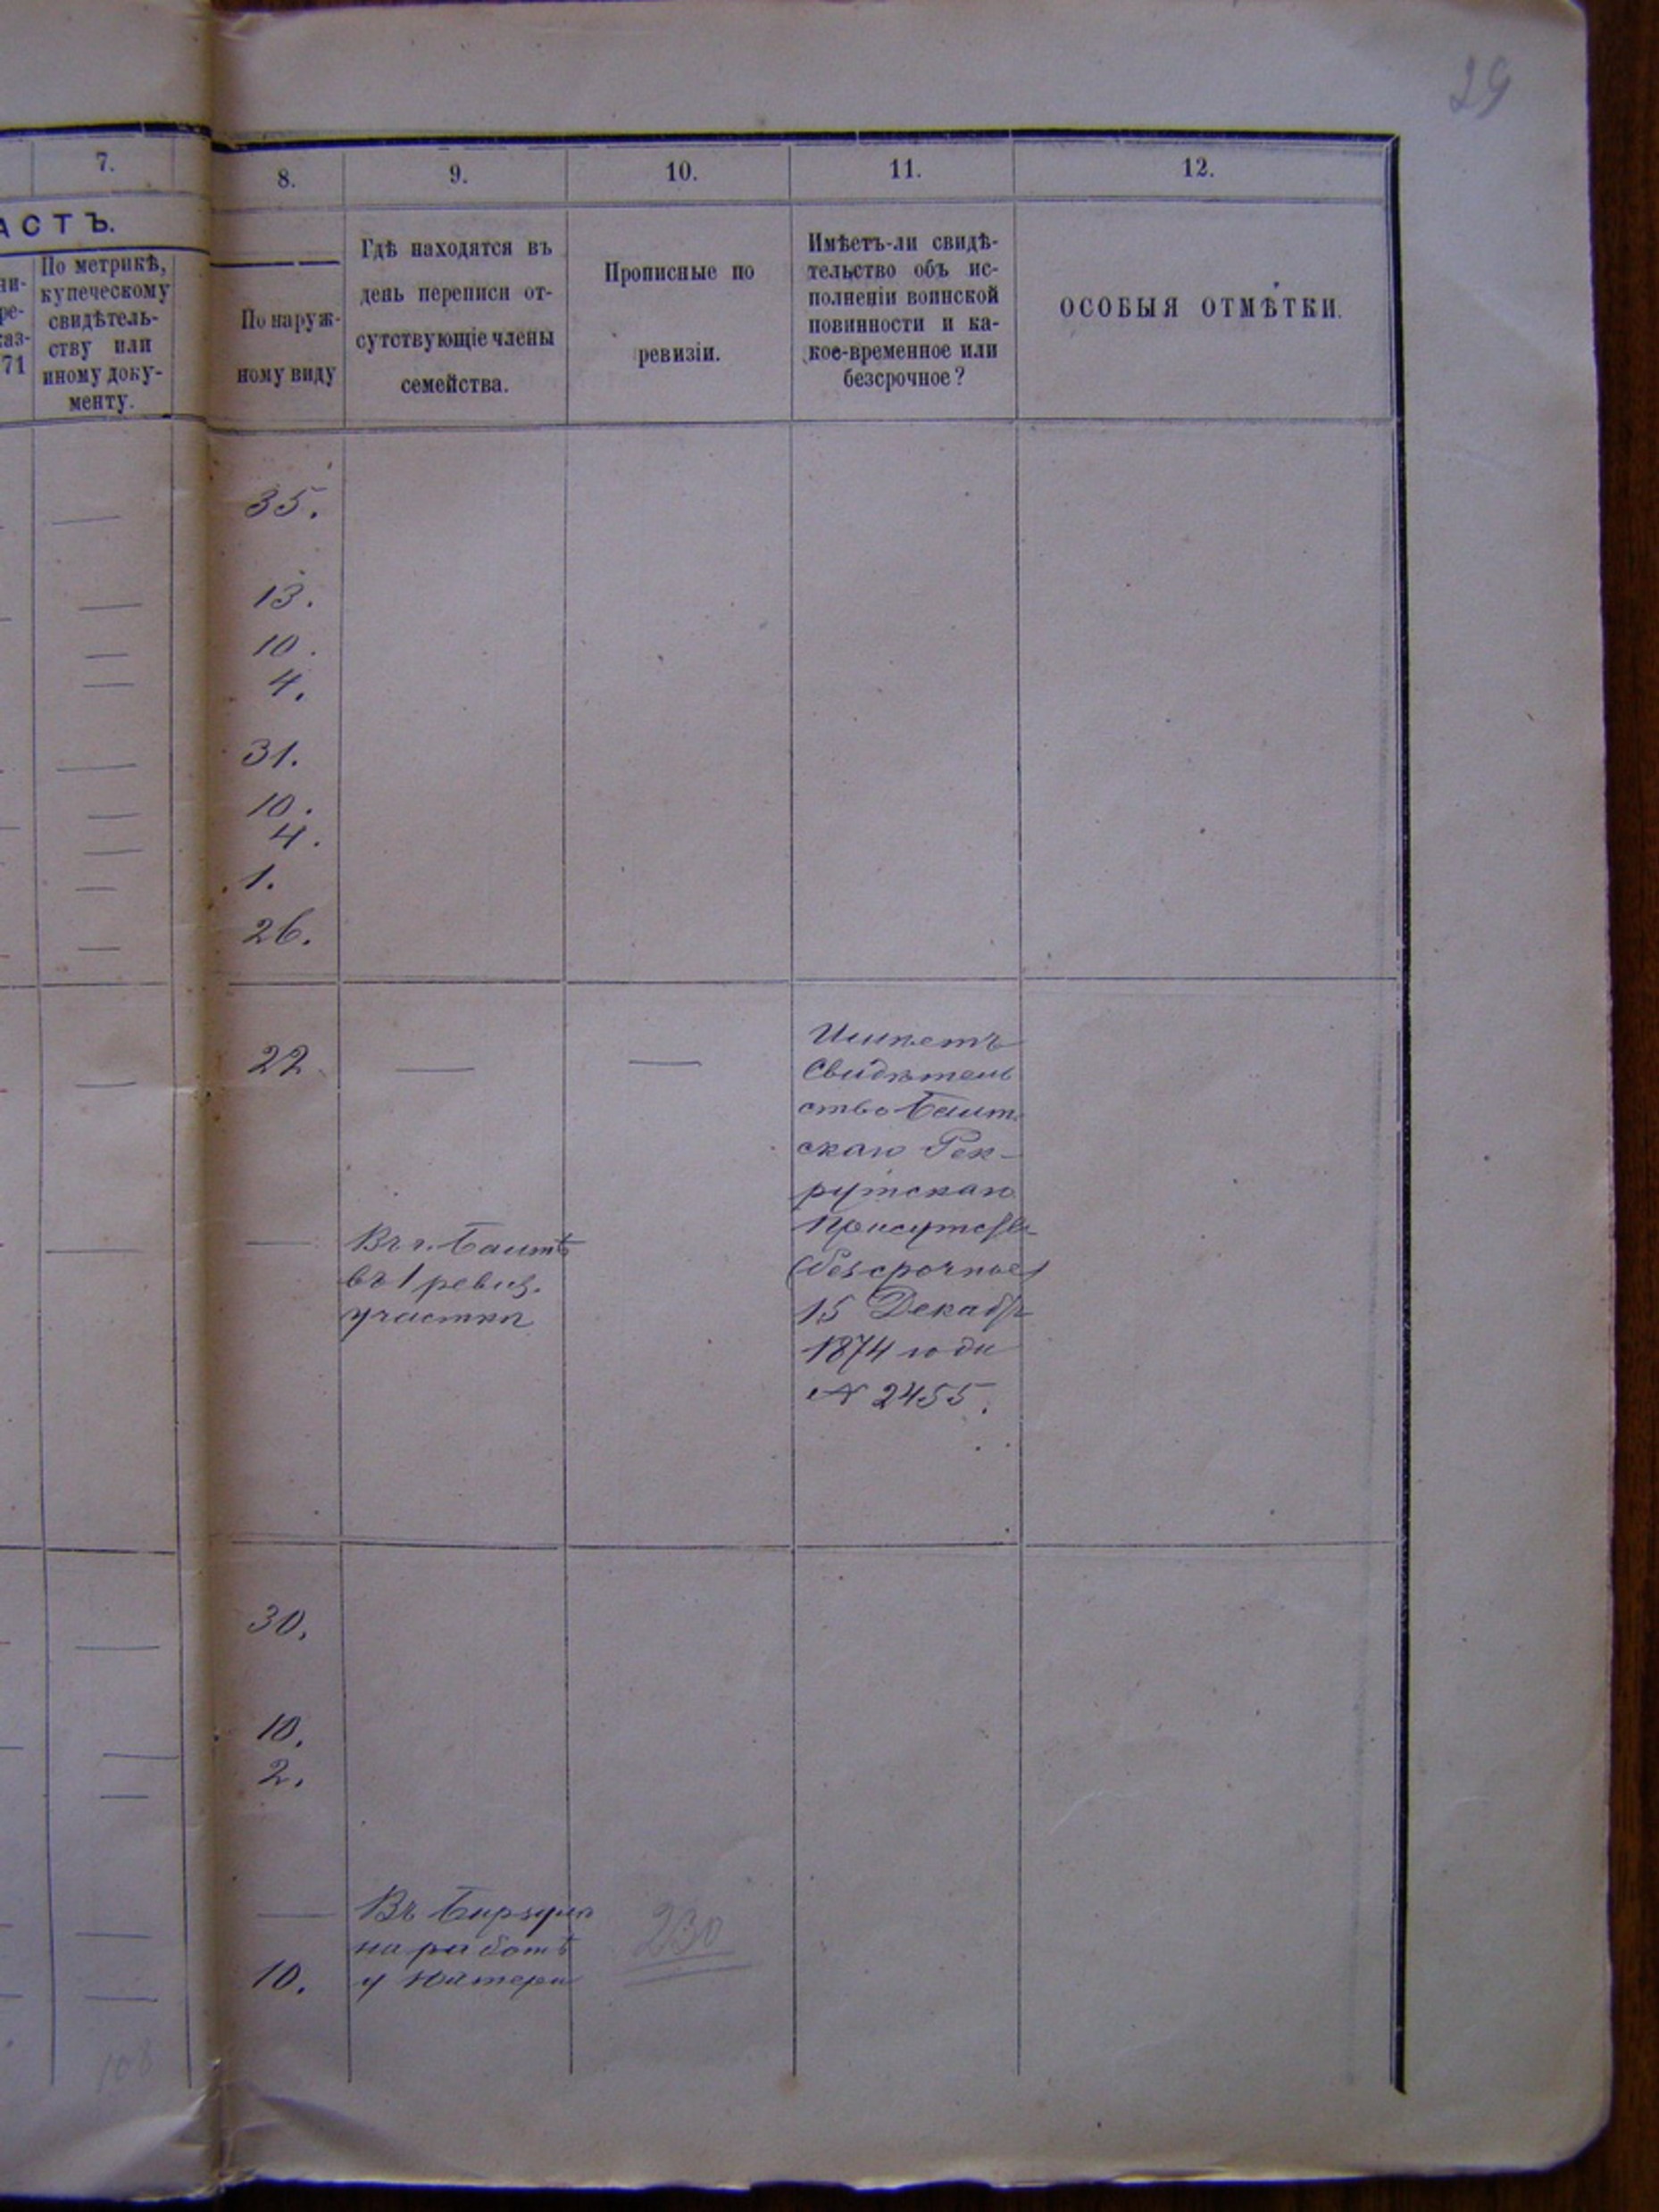 29
7.
8.
9.
10.
11.
12.
АСТЪ.
По метрикѣ,
купеческому
свидѣтель-
ству или
иному доку-
менту.
ни-
ре-
каз-
71
По наруж-
ному виду
Гдѣ находятся въ
день переписи от-
сутствующіе члены
семейства.
Прописные по
ревизіи.
Имѣетъ-ли свидѣ-
тельство объ ис-
полненіи воинской
повинности и ка-
кое-временное или
безсрочное?
ОСОБЫЯ ОТМѢТКИ.
35.
13.
10.
4.
31.
10.
4.
1.
26.
22
Имѣетъ
Свидѣтель
ство Балт
скаго Рек-
рутскаго
Присутств
(безсрочное)
15 Декабр
1874 года
№ 2455.
Въ г. Балтѣ
въ 1 ревиз.
участкѣ
30.
10.
2.
Въ Бирзулѣ
на работѣ
10.
у матери
230
108